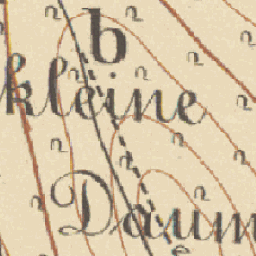 b
kleine
Daum